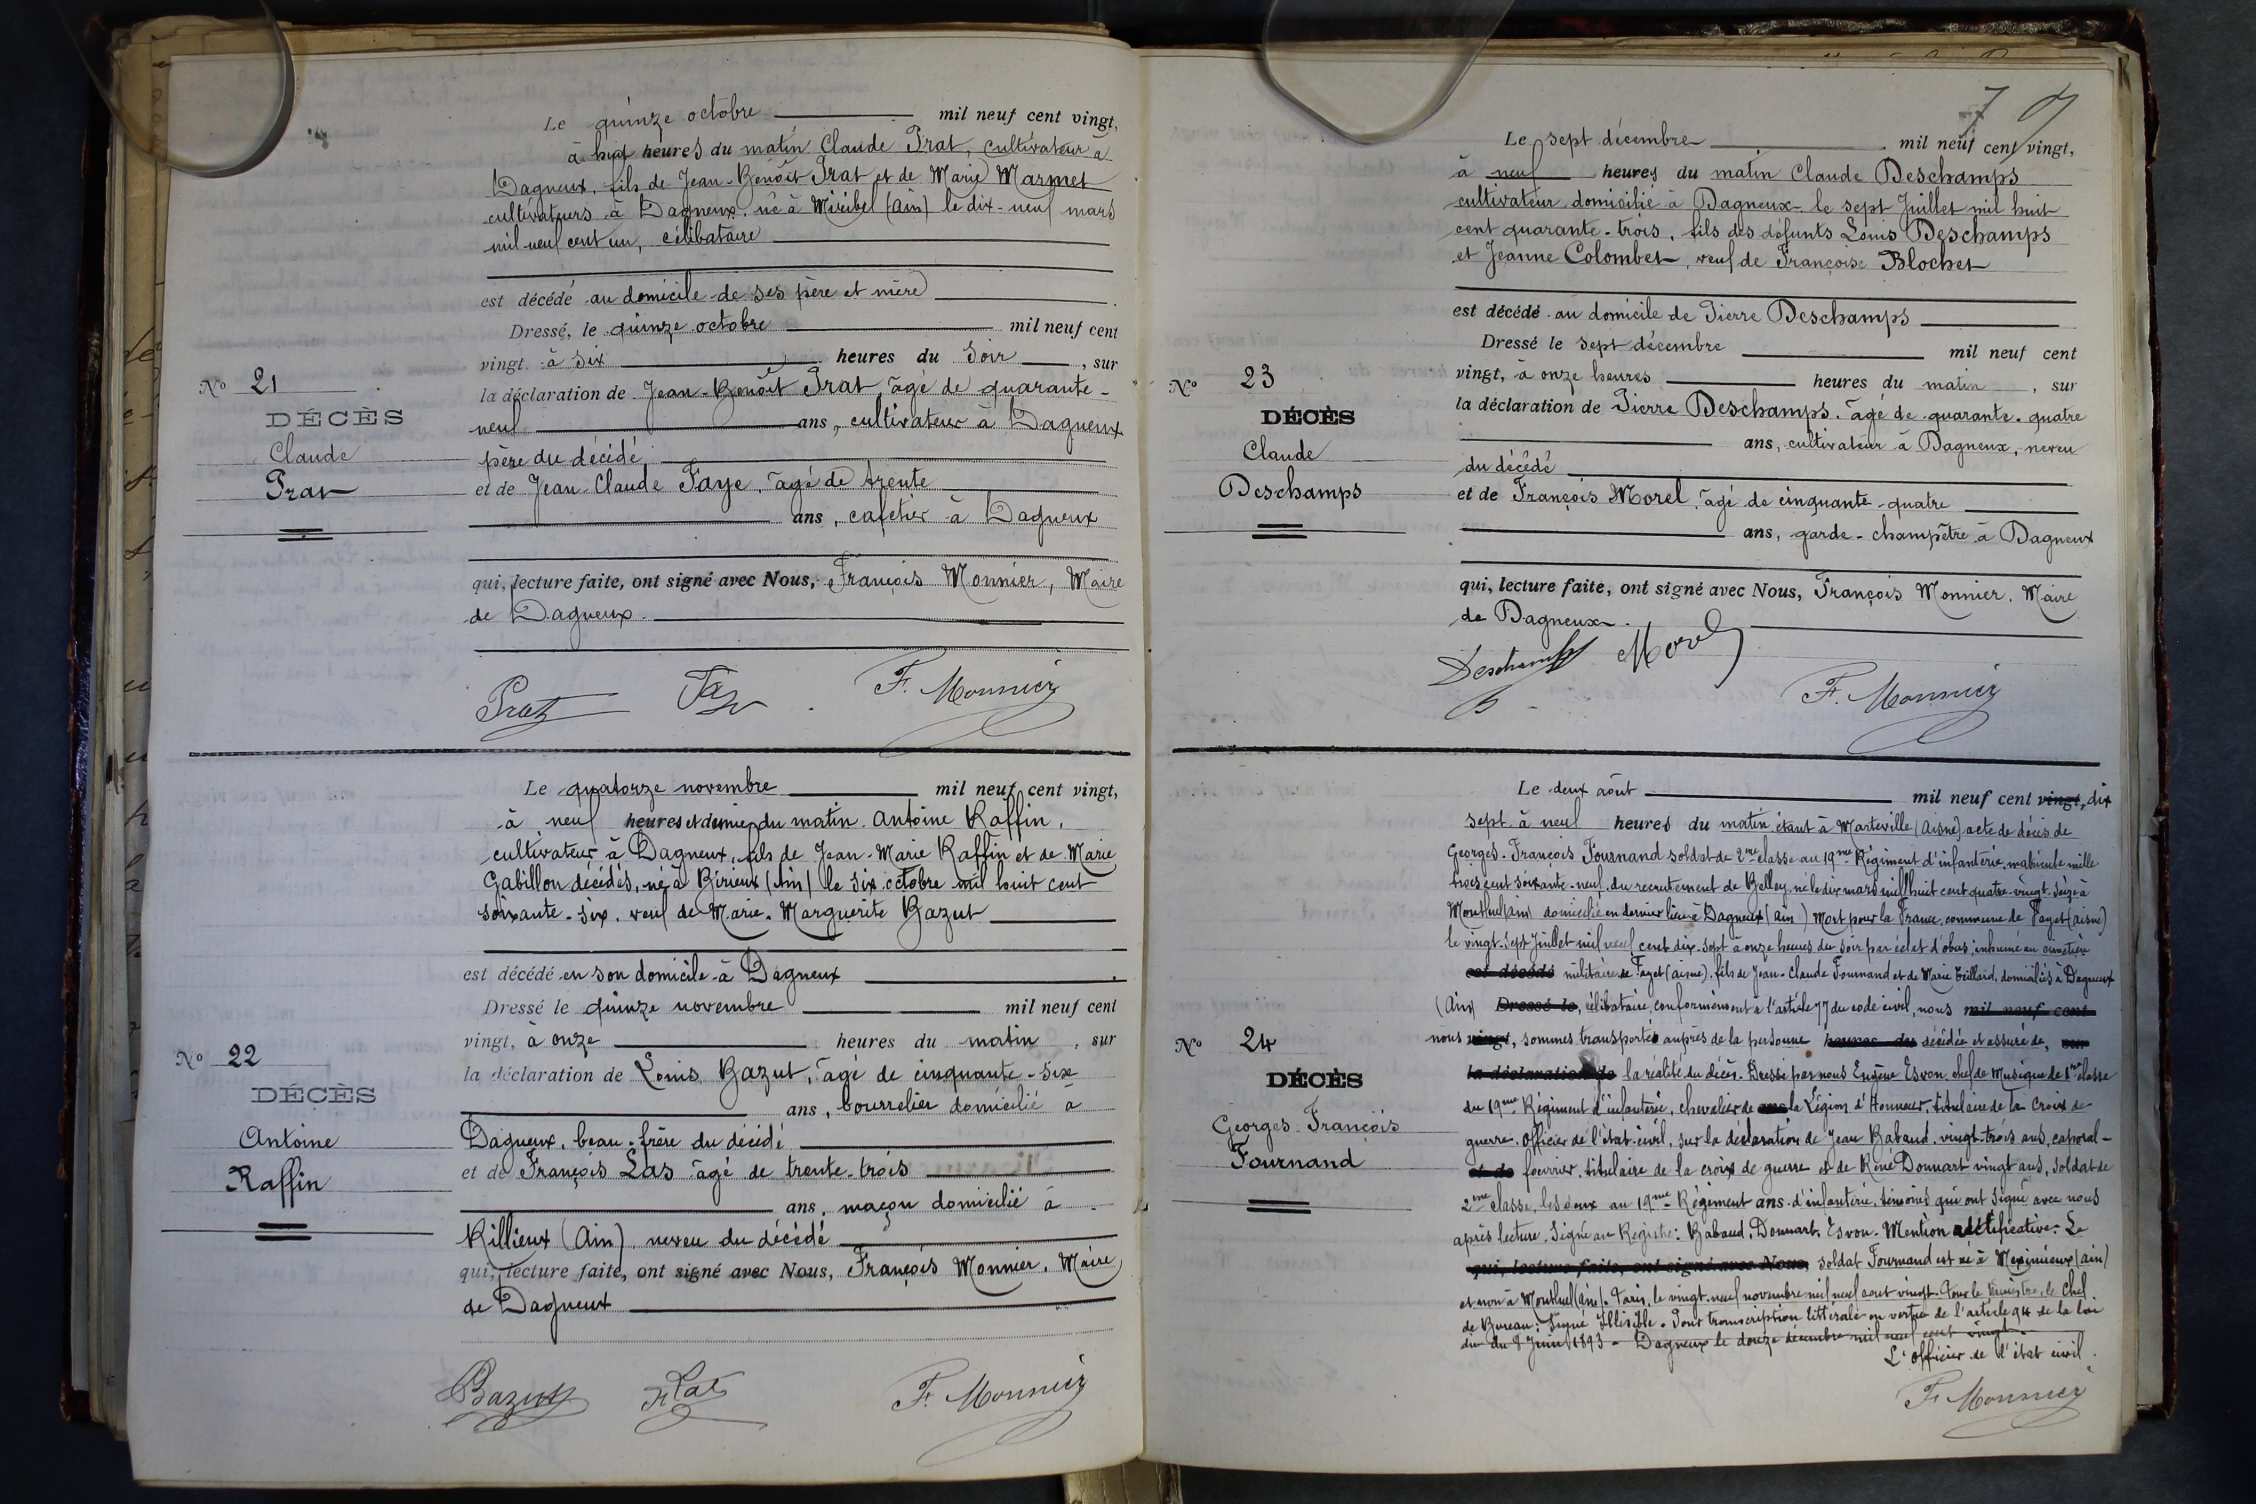 Le quinze octobre mil neuf cent vingt,
à huit heures du matin Claude Prat, cultivateur à
Dagneux, fils de Jean-Benoît Prat et de Marie Marmet
cultivateurs à Dagneux, né à Miribel (Ain) le dix-neuf mars
mil neuf cent un, célibataire
est décédé au domicile de ses père et mère
Dressé, le quinze octobre mil neuf cent
vingt à six heures du soir, sur
la déclaration de Jean-Benoît Prat âgé de quarante-
neuf ans, cultivateur à Dagneux
père du décédé
et de Jean-Claude Faye, âgé de trente
ans, cafetier à Dagneux
qui, lecture faite, ont signé avec Nous, François Monnier, Maire
de Dagneux.
Prat F. Monnier
N° 21
DÉCÈS
Claude
Prat
Le quatorze novembre mil neuf cent vingt,
à neuf heures et demie du matin. Antoine Raffin,
cultivateur à Dagneux, fils de Jean-Marie Raffin et de Marie
Gabillon décédés, né à Birieux (Ain) le six octobre mil huit cent
soixante-six, veuf de Marie-Marguerite Bazut
est décédé en son domicile à Dagneux
Dressé le quinze novembre mil neuf cent
vingt, à onze heures du matin, sur
la déclaration de Louis Bazut, âgé de cinquante-six
ans, bourrelier domicilié à
Dagneux, beau-frère du décédé
et de François Las âgé de trente-trois
ans, maçon domicilié à
Rillieux (Ain), neveu du décédé
qui, lecture faite, ont signé avec Nous, François Monnier, Maire
de Dagneux
Bazut F. Monnier
N° 22
DÉCÈS
Antoine
Raffin
7
Le sept décembre mil neuf cent vingt,
à neuf heures du matin Claude Deschamps
cultivateur domicilié à Dagneux le sept Juillet mil huit
cent quarante-trois, fils des défunts Louis Deschamps
et Jeanne Colombet, veuf de Françoise Blochet
est décédé au domicile de Pierre Deschamps
Dressé le sept décembre mil neuf cent
vingt, à onze heures heures du matin, sur
la déclaration de Pierre Deschamps, âgé de quarante-quatre
ans, cultivateur à Dagneux, neveu
du décédé
et de François Morel, âgé de cinquante-quatre
ans, garde-champêtre à Dagneux
qui, lecture faite, ont signé avec Nous, François Monnier, Maire
de Dagneux.
Deschamps Morel
F. Monnier
N° 23
DÉCÈS
Claude
Deschamps
Le deux août mil neuf cent vingt, dix
sept à neuf heures du matin étant à Marteville (Aisne) acte de décès de
Georges-François Fournand soldat de 2me classe au 19me Régiment d'infanterie, matricule mille
trois cent soixante-neuf, du recrutement de Belley, né le dix mars mil huit cent quatre-vingt-seize à
Montluel (Ain) domicilié en dernier lieu à Dagneux (Ain) Mort pour la France, commune de Fayet (Aisne)
le vingt-sept Juillet mil neuf cent dix-sept à onze heures du soir par éclat d'obus, inhumé au cimetière
est décédé militaire de Fayet (Aisne), fils de Jean-Claude Fournand et de Marie Teillard, domiciliés à Dagneux
(Ain) Dressé le, célibataire, conformément à l'article 77 du code civil, nous mil neuf cent
nous vingt, sommes transportés auprès de la personne heures du décédée et assuré de, sur
la déclaration de la réalité du décès. Dressé par nous Eugène Esvon, chef de Musique de 1ère classe
du 19me Régiment d'infanterie, chevalier de ans la Légion d'Honneur, titulaire de la croix de
guerre, Officier de l'état-civil, sur la déclaration de Jean Rabaud, vingt-trois ans, caporal-
et de fourrier, titulaire de la croix de guerre et de René Donnart vingt ans, soldat de
2me classe, les deux au 19me Régiment ans d'infanterie, témoins qui ont signé avec nous
après lecture. Signé au Registre: Rabaud, Donnart, Esvon. Mention rectificative. Le
qui, lecture faite, ont signé avec Nous, soldat Fournand est né à Meximieux (Ain)
et non à Montluel (Ain). Paris, le vingt-neuf novembre mil neuf cent vingt. Pour le Ministre, le Chef
de Bureau: Signé Illisible. Pour transcription littérale en vertu de l'article 94 de la loi
du 8 Juin 1893 - Dagneux le douze décembre mil neuf cent vingt.
L'Officier de l'état civil.
F. Monnier
N° 24
DÉCÈS
Georges-François
Fournand